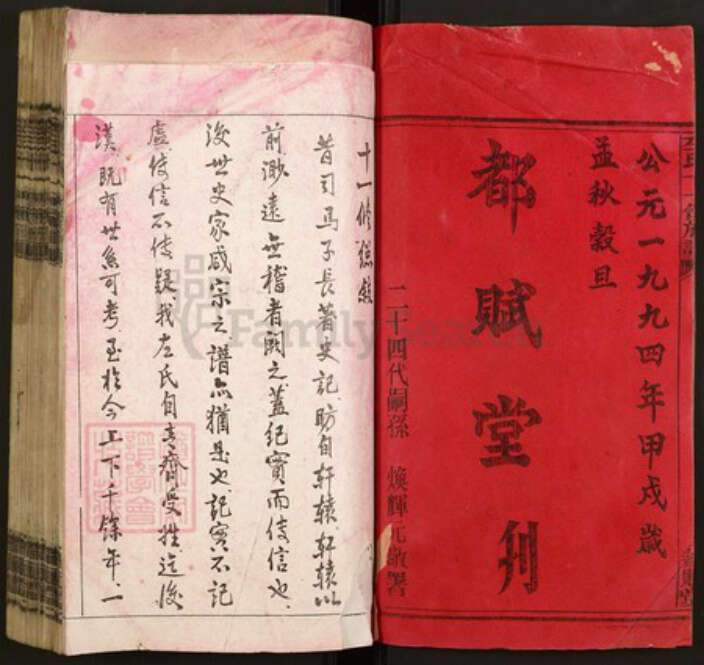 公元一九九四年甲戌歲
孟秋穀旦
都賦堂刊
二十四代嗣孫 煥輝元敬署
十一修
昔司馬子長著史記昉自軒轅軒轅以
前渺遠無稽者闕之蓋紀實而傳信也
後世史家咸宗之譜亦猶是也記實不記
虛傳信不傳疑我左氏自齊受姓迄後
漢既有世系可考至於今上下千餘年一
FamilySearch